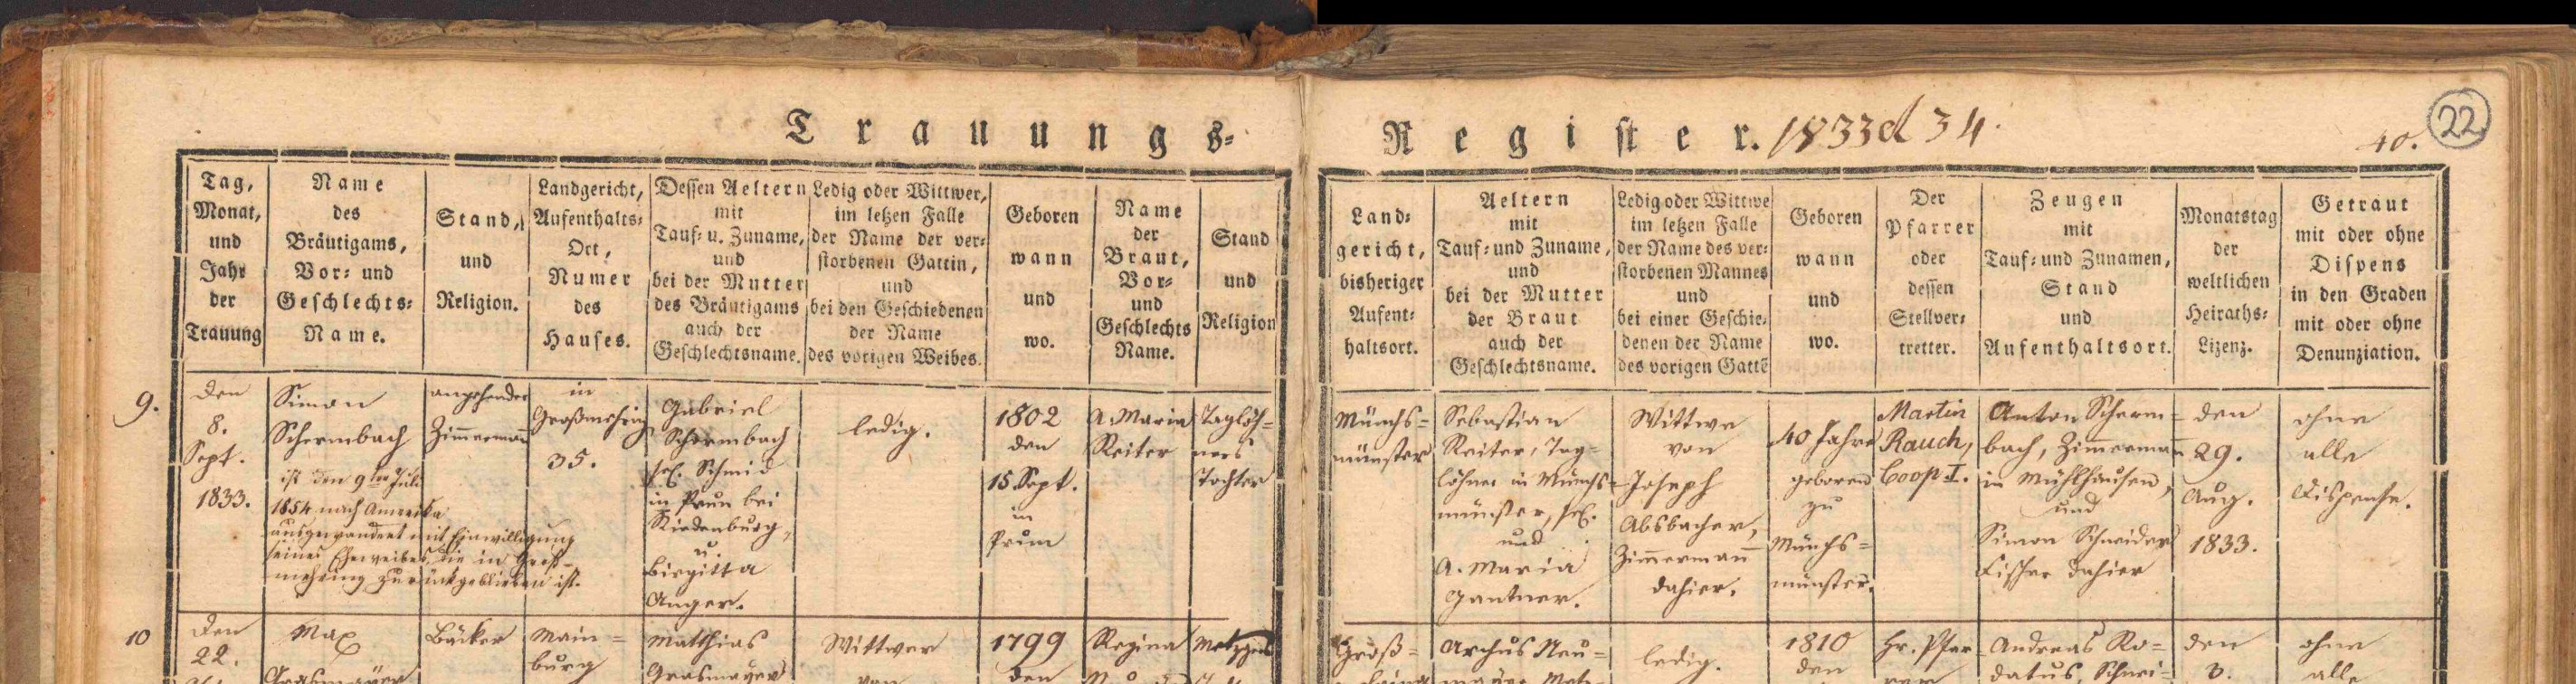 Trauungs-
Register. 1833 et 34.
40.
22
Tag,
Monat,
und
Jahr
der
Trauung
Name
des
Bräutigams,
Vor- und
Geschlechts-
Name.
Stand,
und
Religion.
Landgericht,
Aufenthalts-
Ort,
Numer
des
Hauses.
Dessen Aeltern
mit
Tauf- u. Zuname,
und
bei der Mutter
des Bräutigams
auch der
Geschlechtsname.
Ledig oder Wittwer,
im letzen Falle
der Name der ver-
storbenen Gattin,
und
bei den Geschiedenen
der Name
des vorigen Weibes.
Geboren
wann
und
wo.
Name
der
Braut,
Vor-
und
Geschlechts
Name.
Stand
und
Religion
Land-
gericht,
bisheriger
Aufent-
haltsort.
Aeltern
mit
Tauf- und Zuname,
und
bei der Mutter
der Braut
auch der
Geschlechtsname.
Ledig oder Wittwe
im letzen Falle
der Name des ver-
storbenen Mannes
und
bei einer Geschie-
denen der Name
des vorigen Gatte
Geboren
wann
und
wo.
Der
Pfarrer
oder
dessen
Stellver-
tretter.
Zeugen
mit
Tauf- und Zunamen,
Stand
und
Aufenthaltsort.
Monatstag
der
weltlichen
Heiraths-
Lizenz.
Getraut
mit oder ohne
Dispens
in den Graden
mit oder ohne
Denunziation.
9.
den
8.
Sept.
1833.
Simon
Schermbach
ist den 9ten Juli
1854 nach Amerika
ausgewandert mit Einwilligung
seines Eheweibes, die in Groß-
mehring zurückgeblieben ist.
angehender
Zimmermann
in
Großmehring
35.
Gabriel
Schermbach
sel. Schmid
in Prun bei
Riedenburg,
u.
Birgitta
Anger.
ledig.
1802
den
15. Sept.
in
Prun
A. Maria
Reiter
Taglöh-
ners
Tochter
Münchs-
münster
Sebastian
Reiter, Tag-
löhner in Münchs-
münster, sel.
und
A. Maria
Gantner.
Wittwe
von
Joseph
Absbacher,
Zimmermann
dahier.
40 Jahre
geboren
zu
Münchs-
münster.
Martin
Rauch,
Coop I.
Anton Scherm-
bach, Zimmermann
in Mühlhausen,
und
Simon Schneider
Fischer dahier
den
29.
Aug.
1833.
ohne
alle
Dispense.
10
den
22.
Max
Grasmayer
Bäcker
Main-
burg
Matthias
Grasmayer
Wittwer
von
1799
den
Regina
Metzgers
Groß-
Neu-
ledig.
1810
den
Hr. Pfar-
rer
Andreas Ro-
datus, Schnei-
den
3.
ohne
alle